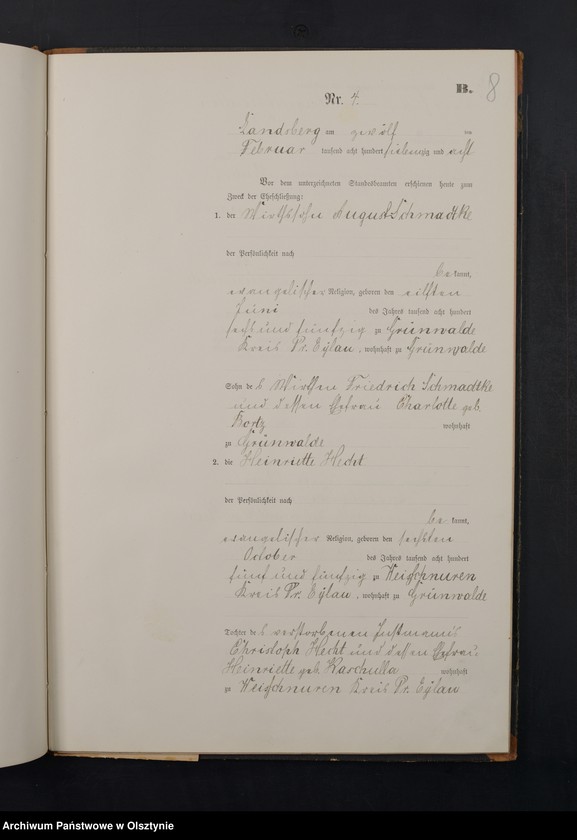 B. 8
Nr. 4.
Landsberg am zwölf ten
Februar tausend acht hundert siebenzig und acht
Vor dem unterzeichneten Standesbeamten erschienen heute zum
Zweck der Eheschließung:
1. der Wirthssohn August Schmadtke
der Persönlichkeit nach
be kannt,
evangelischer Religion, geboren den eilften
Juni des Jahres tausend acht hundert
sechs und fünfzig zu Grünwalde
Kreis Pr. Eylau, wohnhaft zu Grünwalde
Sohn des Wirthen Friedrich Schmadtke
und dessen Ehefrau Charlotte geb.
Bortz wohnhaft
zu Grünwalde
2. die Heinriette Hecht
der Persönlichkeit nach
be kannt,
evangelischer Religion, geboren den sechsten
October des Jahres tausend acht hundert
fünf und fünfzig zu Weischnuren
Kreis Pr. Eylau, wohnhaft zu Grünwalde
Tochter des verstorbenen Instmanns
Christoph Hecht und dessen Ehefrau
Heinriette geb. Raschulla wohnhaft
zu Weischnuren Kreis Pr. Eylau
Archiwum Państwowe w Olsztynie